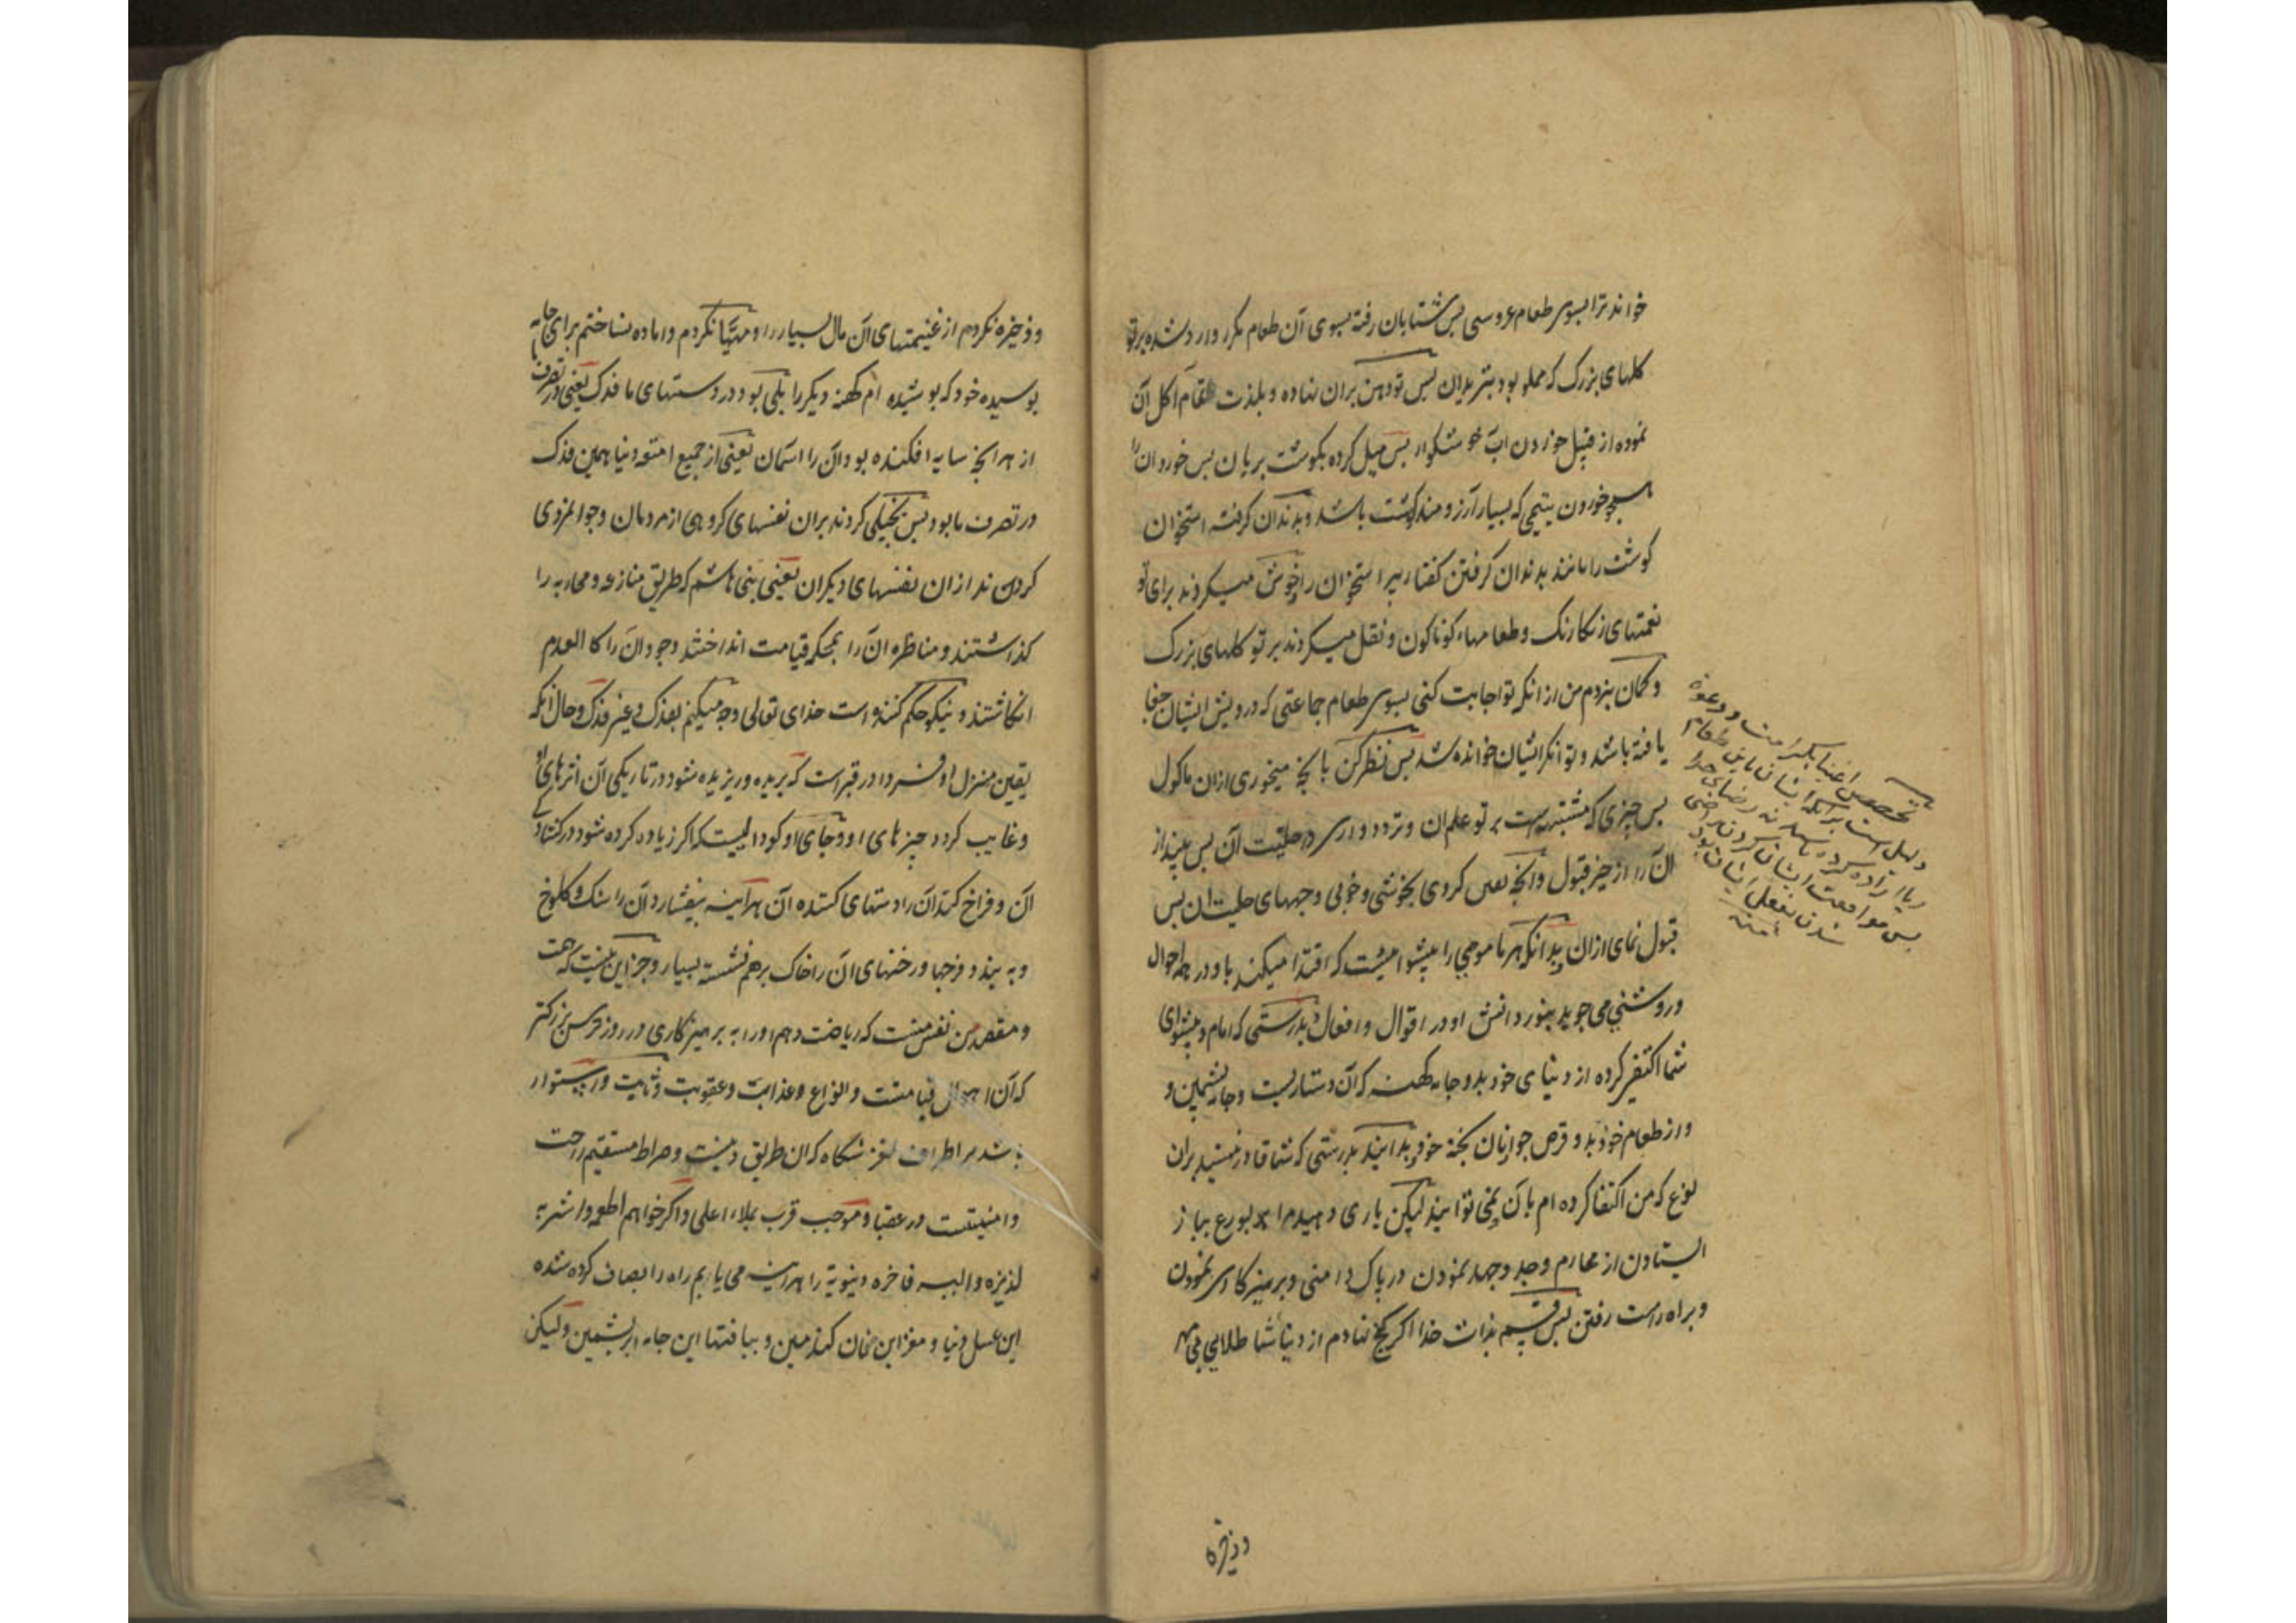 خواند ترا بسوی طعام عروسی پس شتابان رفته بسوی آن طعام مکرر وارد شده بر تو
کلهای بزرک که مملو بود بتریدان پس تو دهن بران نهاده و بلذت تمام اکل آن
نموده از قبیل خوردن آب خوشکوار پس میل کرده بکوشت بریان پس خورد آن را
همچو خوردن یتیمی که بسیار آرزومند کوشت باشد و بدندان کرفته استخوان
کوشت را مانند بدندان کرفتن کفتار پیر استخوان را خوش میکردند برای تو
نعمتهای رنکارنک و طعامهاء کوناکون و نقل میکردند بر تو کلهای بزرک
و کمان نبردم من از انکه تو اجابت کنی بسوی طعام جماعتی که درویش ایشان جفا
یافته باشد و توانکر ایشان خوانده شد پس نظر کن بآنچه میخوری ازان ماکول
پس چیزی که مشتبه است بر تو علم ان و تردد داری در حلیت آن پس بینداز
آن را از حیز قبول وآنچه یقین کردی بخوشی و خوبی وجههای حلیت ان پس
قبول نمای ازان بدانکه هر مامومی را پیشوائیست که اقتدا میکند باو در همه احوال
و روشنی می جوید بنور دانش او در اقوال و افعال بدرستی که امام و پیشوای
شما اکتفی کرده از دنیای خود بدو جامه کهنه که آن دستاریست و جامه پشمین و
و از طعام خود بدو قرص جو از نان پخته خود بدانید بدرستی که شما قادر نیستید بران
نوع که من اکتفا کرده ام بآن نمی توانید لیکن یاری دهید مرا بورع بباز
ایستادن از محارم و جد و جهد نمودن در پاک دامنی و پرهیزکاری نمودن
و براه راست رفتن پس قسم بذات خدا اکر کنج ننهادم از دنیا شما طلایی بی مهر
تخصیص اغنیا بکرامت و دعوة
دلیل است برآنکه ایشان باین طعام
ریا اراده کرده باشند نه رضای خدا
پس موافقت ایشان کردن راضی
شدن بفعل ایشان بود
منه
وذخیره
و ذخیره نکردم از غنیمتهای آن مال بسیار را و مهیا نکردم و اماده نساختم برای جامه
پوسیده خود که پوشیده ام کهنه دیکر را بلی بود در دستهای ما فدک یعنی در تصرف ما
از هر آنچه سایه افکنده بود آن را اسمان یعنی از جمیع امتعه دنیا همین فدک
در تصرف ما بود پس بخیلی کردند بران نفسهای کروهی از مردمان و جوانمردی
کردند از ان نفسهای دیکران یعنی بنی هاشم که طریق منازعه و محاربه را
کذاشتند و مناظره آن را بمحکمه قیامت انداختند وجود آن را کالعدم
انکاشتند و نیکو حکم کننده است خدای تعالی و چه میکنم بفدک و غیر فدک و حال آنکه
یقین منزل او فردا در قبر است که بریده و ریزیده شود در تاریکی آن اثرهای او
و غایب کردد چیزهای او و جای او کودالیست که اکر زیاده کرده شود در کشادکی
آن و فراخ کند آن را دستهای کننده آن هرآینه بیفشارد آن را سنک و کلوخ
و به بندد فرجها و رخنهای آن را خاک برهم نشسته بسیار و جز این نیست که همت
و مقصد من نفس منست که ریاضت دهم او را به پرهیزکاری در روز ترس بزرکتر
که آن اهوال قیامتست و انواع و عذابت و عقوبت و ثابت و استوار
باشد بر اطراف لغزشکاه که ان طریق دینست و صراط مستقیم راحت
و امنیتست در عقبا و موجب قرب بملاء اعلی و اکر خواهم اطعمه و اشربه
لذیزه و البسه فاخره دنیویة را هرآینه می یابم راه را بصاف کرده شده
این عسل دنیا و مغز این نان کندمین و ببافتها این جامه ابریشمین و لیکن